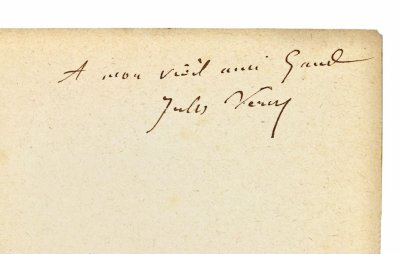 A mon vieil ami Gaud
Jules Verne